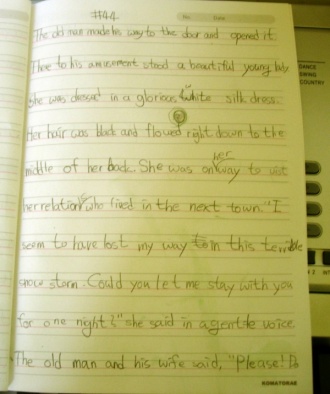 #44
No. Date
The old man made his way to the door and opened it.
There to his amusement stood a beautiful young lady.
She was dressed in a glorious white silk dress.
Her hair was black and flowed right down to the
middle of her back. She was on her way to visit
her relation who lived in the next town. "I
seem to have lost my way to in this terrible
snow storm. Could you let me stay with you
for one night?" she said in a gentle voice.
The old man and his wife said, "Please! Do
DANCE
SWING
COUNTRY
KOMATORAE